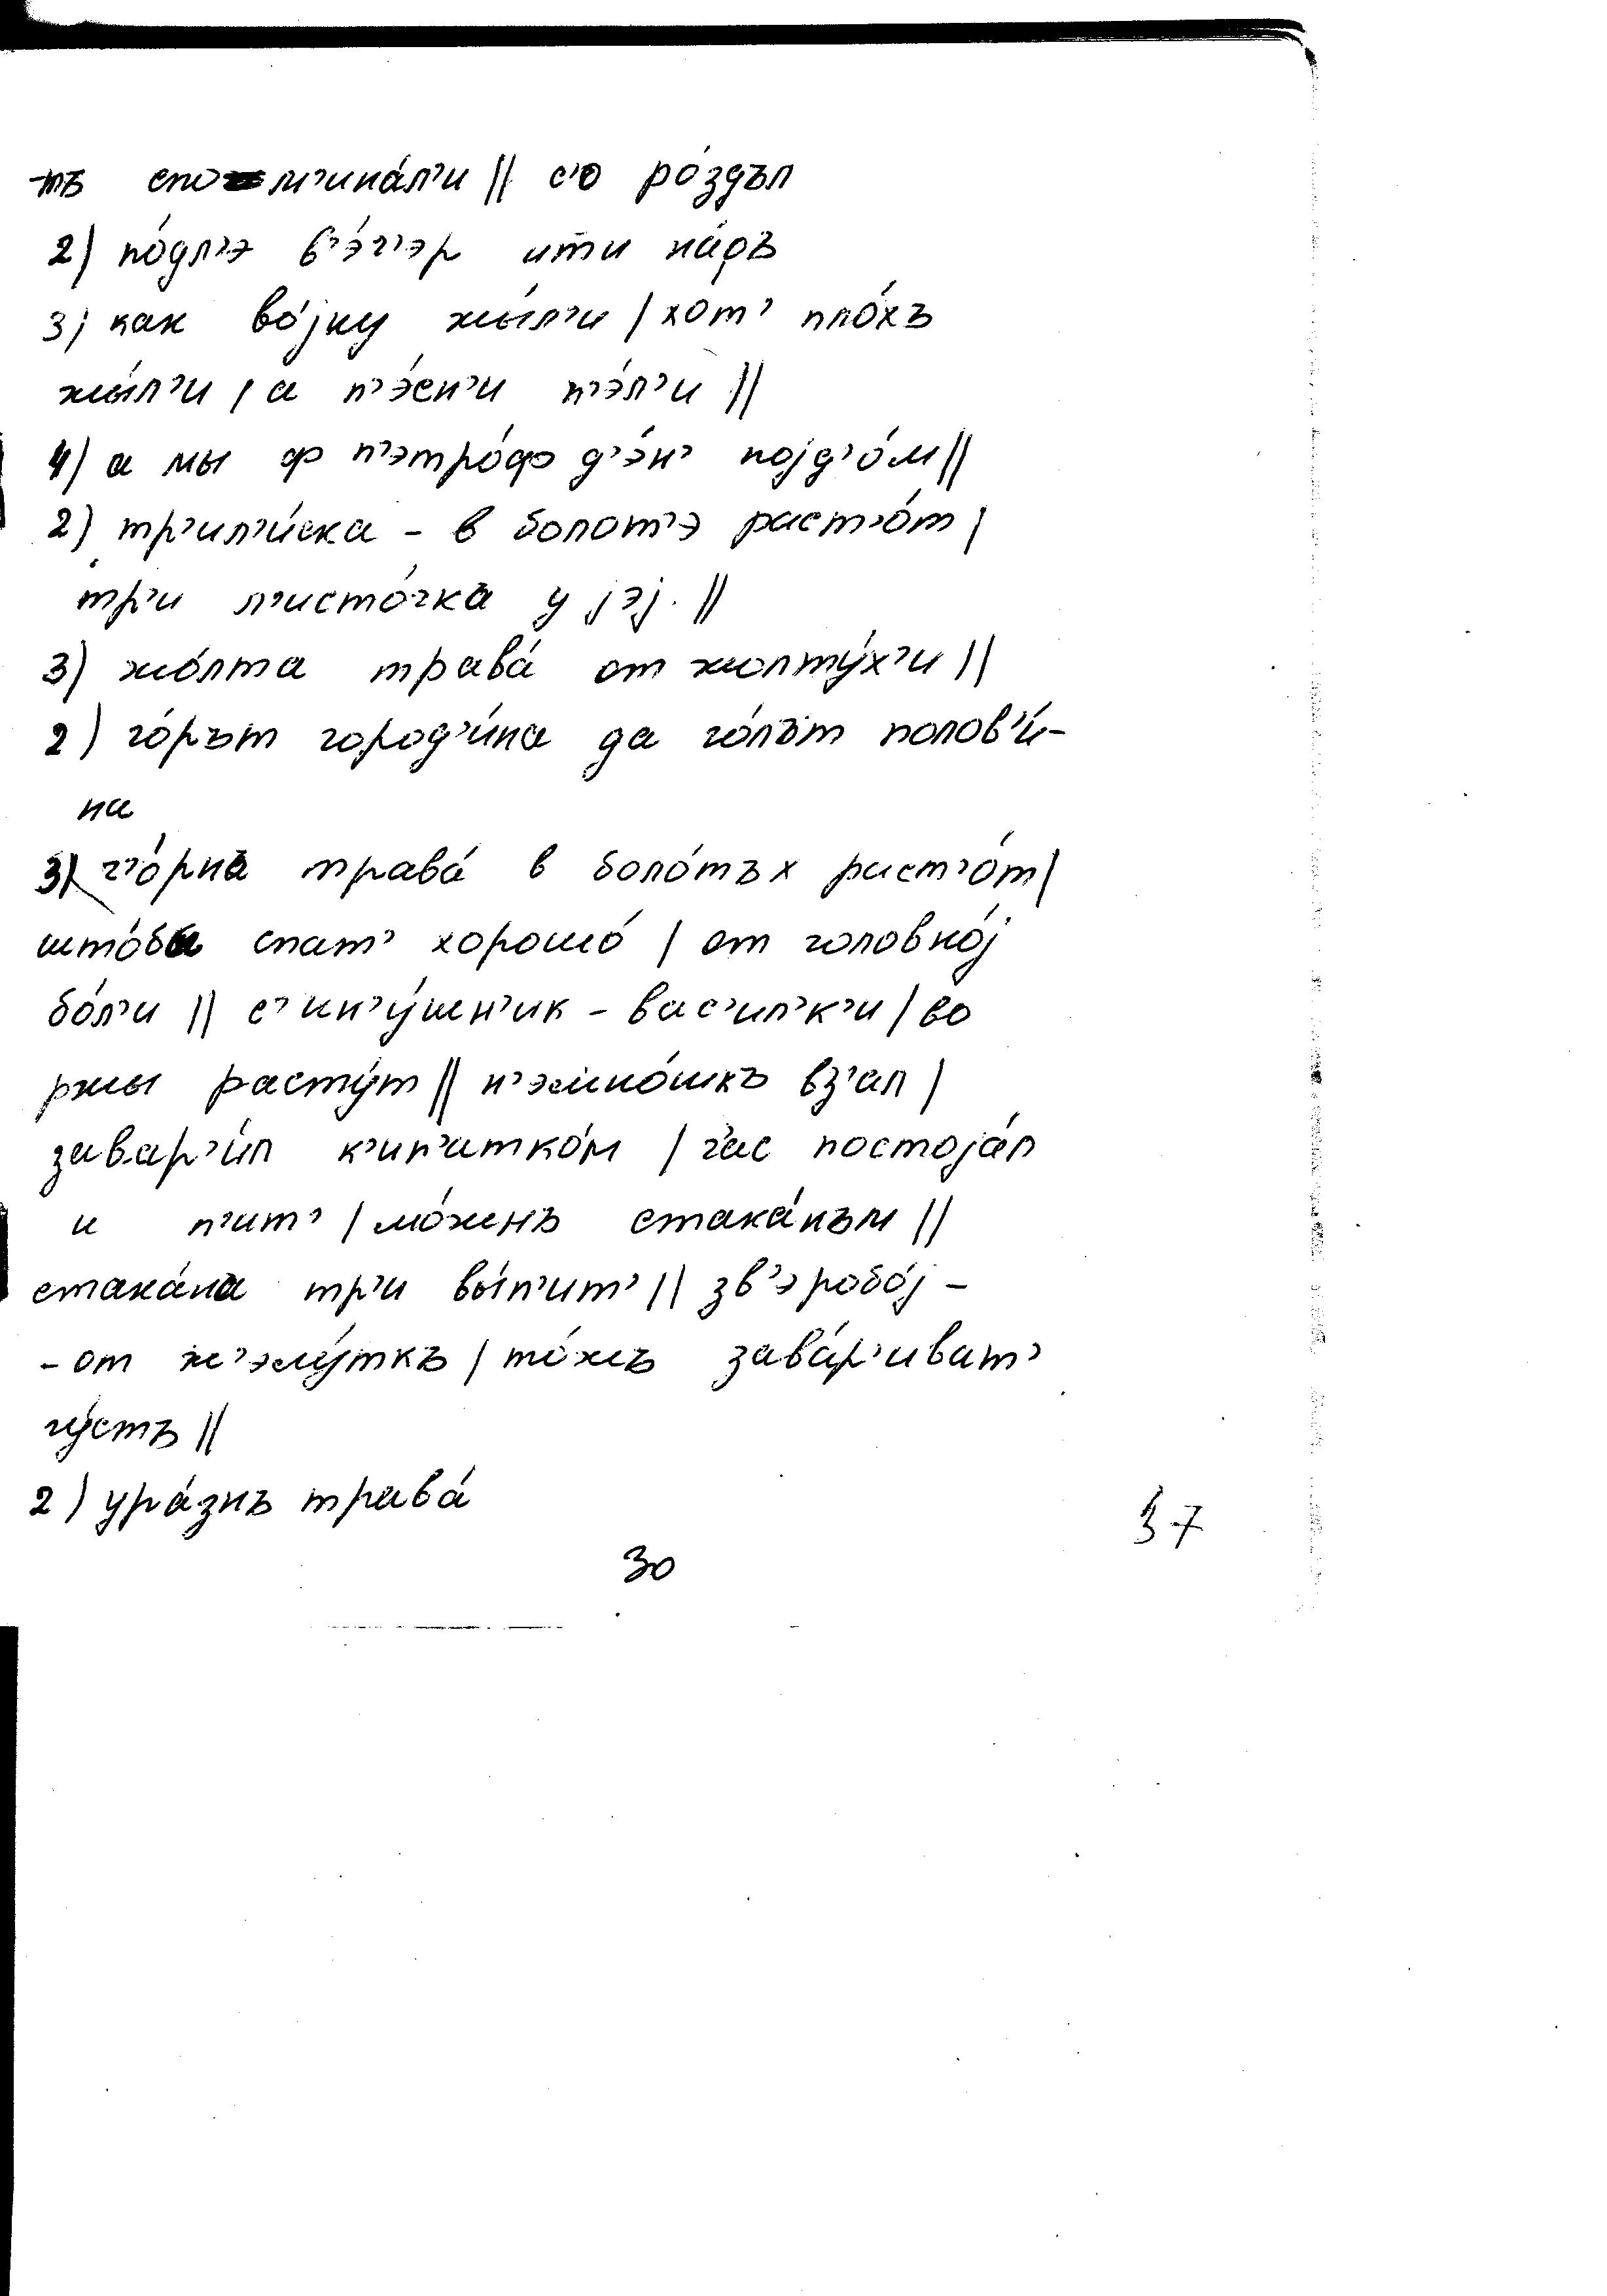 тъ спом'ина́л'и || с'о ро́здъл
2) по́дл'э в'э́ч'эр ити на́дъ
3) как во́jну жы́л'и | хот' пло́хъ
жы́л'и | а п'э́сн'и п'э́л'и ||
4) а мы ф п'этро́ф д'э́н' поjд'о́м ||
2) тр'ил'и́ска - в болот'э раст'о́т |
тр'и л'исто́чка у jэj. ||
3) жо́лта трава́ от жолту́х'и ||
2) го́рът город'и́на да го́лът полов'и́-
на
3) ч'о́рна трава́ в боло́тъх раст'о́т |
што́бы спат' хорошо́ | от головно́j
бо́л'и || с'ин'у́шн'ик - вас'ил'к'и | во
ржы расту́т || н'эмно́шкъ вз'ал |
завар'и́л к'ип'итко́м | час постоjа́л
и п'ит' | мо́жнъ стака́нъм ||
стака́на тр'и вы́п'ит' || зв'эробо́j -
- от ж'элу́ткъ | то́жъ зава́р'иват'
гу́стъ ||
2) ура́знъ трава́
30
37